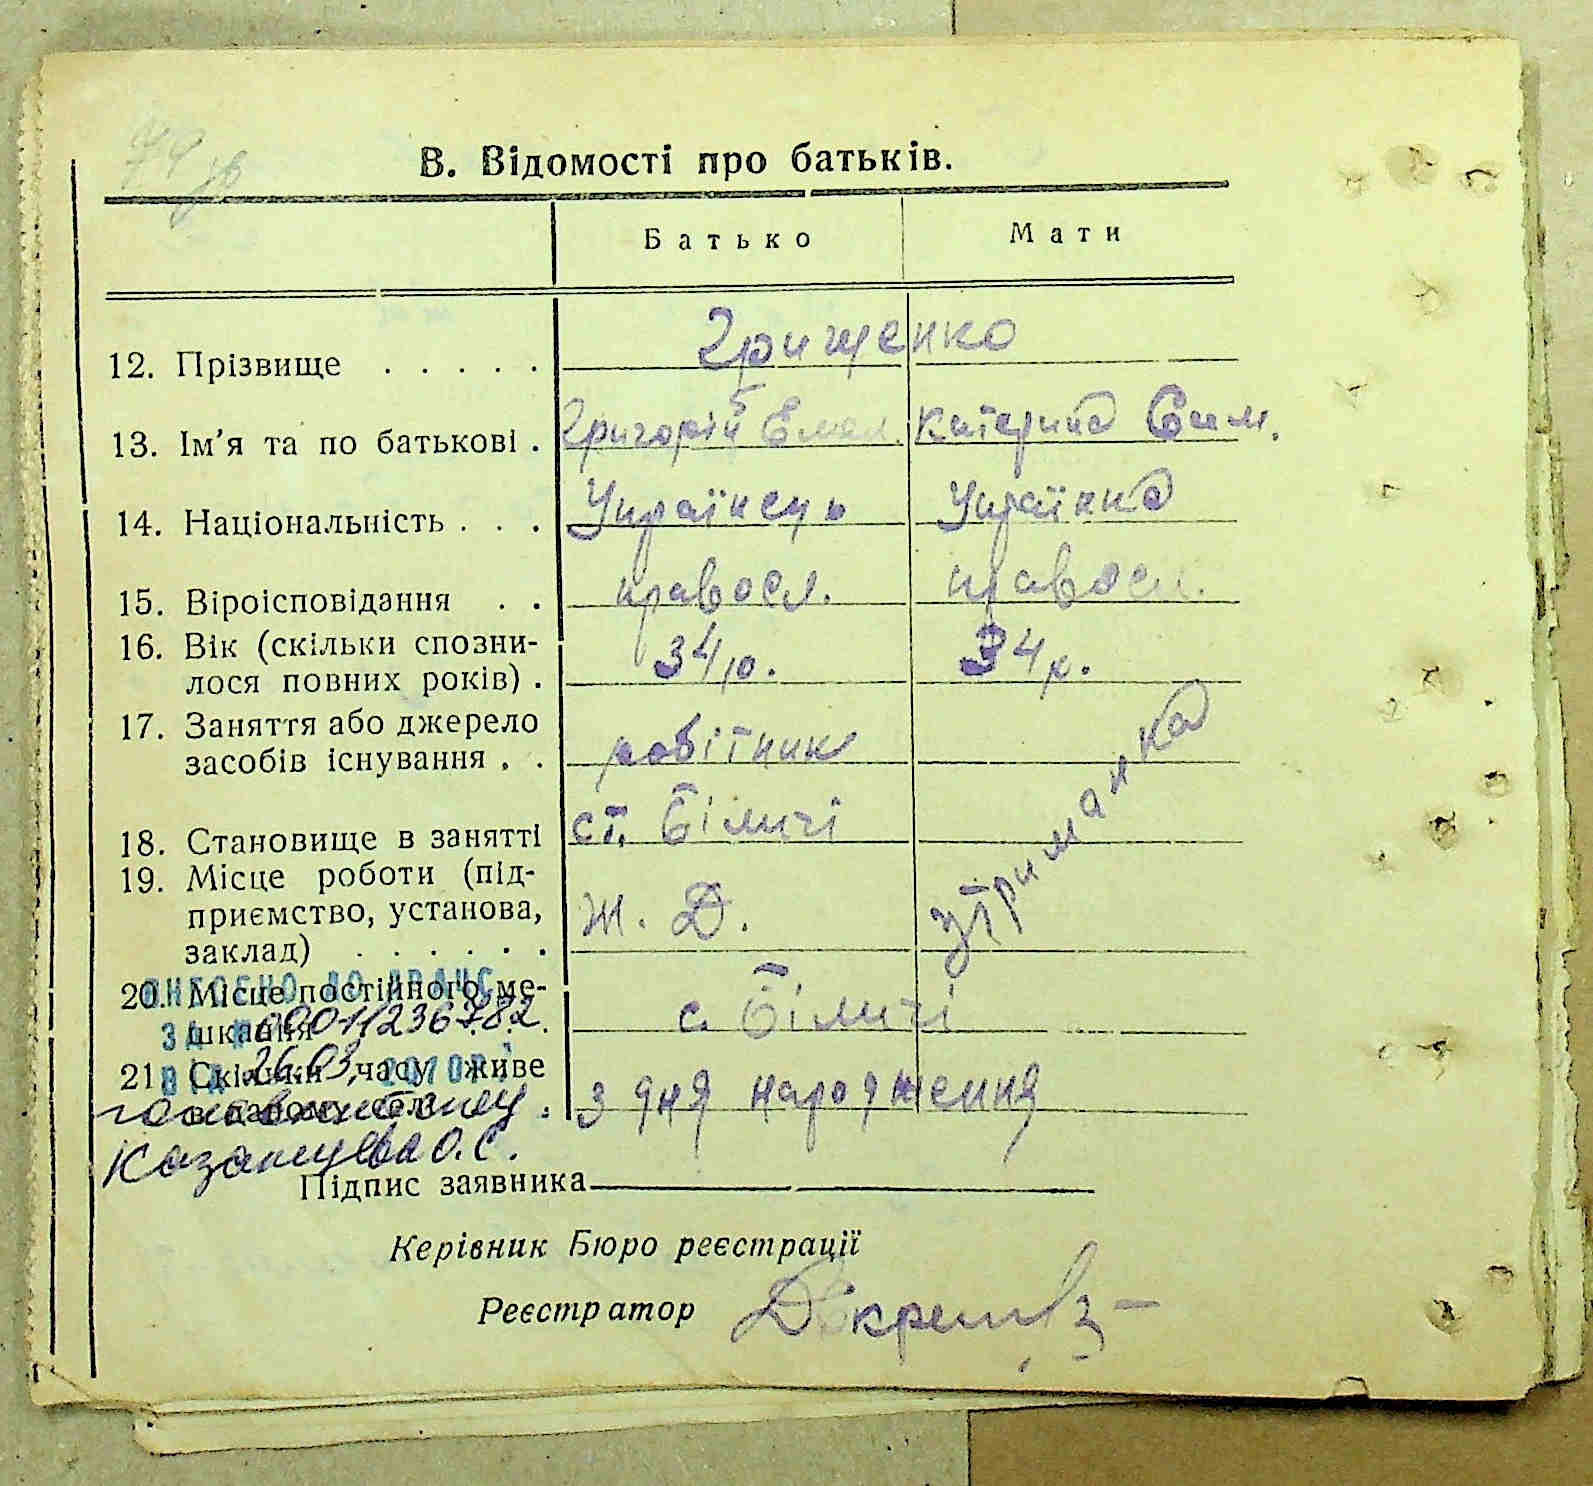 79 зв
В. Відомості про батьків.
Батько Мати
12. Прізвище . . . . . Грищенко
13. Ім'я та по батькові . Григорій Емел. Катерина Сим.
14. Національність . . . Українець Українка
15. Віроісповідання . . правосл. правосл.
16. Вік (скільки спозни-
лося повних років) . 34 р. 34 р.
17. Заняття або джерело
засобів існування . . робітник утриманка
18. Становище в занятті ст. Біличі
19. Місце роботи (під-
приємство, установа,
заклад) . . . . . . Ж. Д.
ВНЕСЕНО ДО ДРАЦС
20. Місце постійного ме-
шкання с. Біличі
ЗА № 00011236782
21. Скільки часу живе
ВІД 26.03. 2010р.
з дня народження
головний спец.
Казанцева О.С.
Підпис заявника
Керівник Бюро реєстрації
Реєстратор